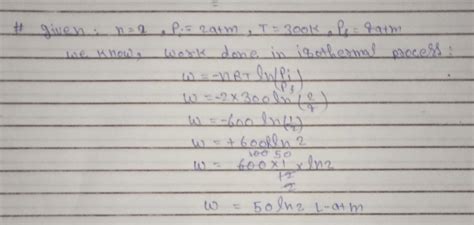 # given: n=2, Pi=2atm, T=300K, Pf=4atm
we know, work done in isothermal process:
W=-nRT ln(Pi/Pf)
W=-2×300 ln(2/4)
W=-600 ln(1/2)
W=+600R ln 2
100 50
W= 600×1/12 × ln2
2
W = 50 ln2 L-atm